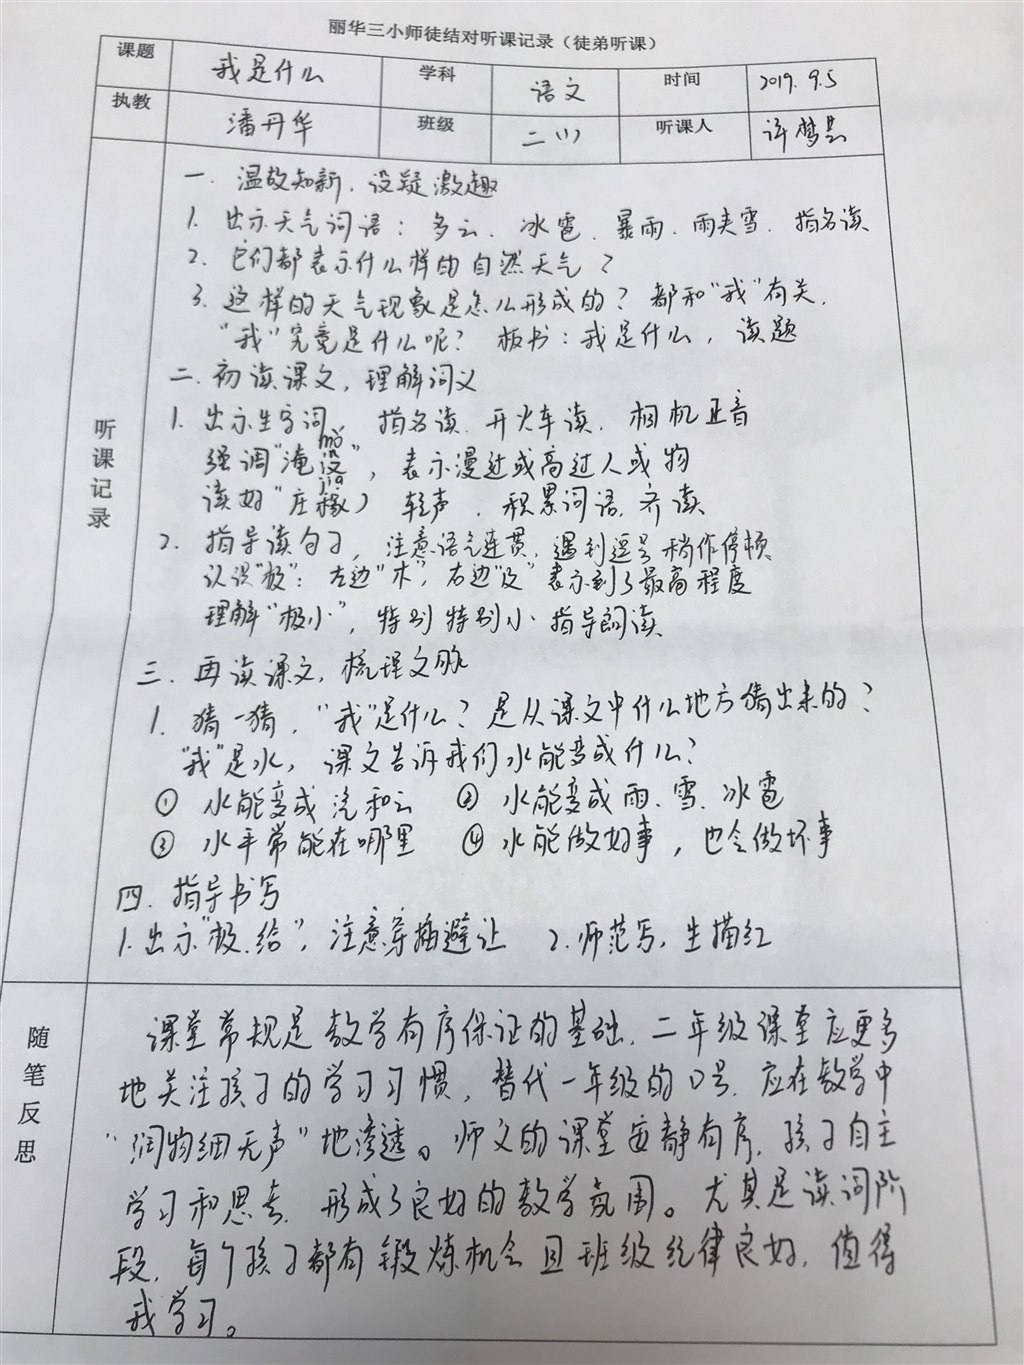 丽华三小师徒结对听课记录（徒弟听课）
课题 我是什么 学科 语文 时间 2019.9.5
执教 潘丹华 班级 二（1） 听课人 许梦芸
听课记录
一. 温故知新，设疑激趣
1. 出示天气词语：多云、冰雹、暴雨、雨夹雪，指名读
2. 它们都表示什么样的自然天气？
3. 这样的天气现象是怎么形成的？都和“我”有关.
“我”究竟是什么呢？ 板书：我是什么，读题
二. 初读课文，理解词义
1. 出示生字词，指名读，开火车读，相机正音
mò
强调“淹没”，表示漫过或高过人或物
jia
读好“庄稼）轻声，积累词语，齐读
2. 指导读句子，注意语气连贯，遇到逗号稍作停顿
认识“极”：左边“木”，右边“及”表示到了最高程度
理解“极小”，特别特别小 指导朗读
三. 再读课文，梳理文脉
1. 猜一猜，“我”是什么？是从课文中什么地方猜出来的？
“我”是水，课文告诉我们水能变成什么？
① 水能变成汽和云 ② 水能变成雨、雪、冰雹
③ 水平常能在哪里 ④ 水能做好事，也会做坏事
四. 指导书写
1. 出示“极、给”，注意穿插避让 2. 师范写，生描红
随笔反思
课堂常规是教学有序保证的基础，二年级课堂应更多
地关注孩子的学习习惯，替代一年级的口号，应在教学中
“润物细无声”地渗透。师父的课堂安静有序，孩子自主
学习和思考，形成了良好的教学氛围。尤其是读词阶
段，每个孩子都有锻炼机会且班级纪律良好，值得
我学习。